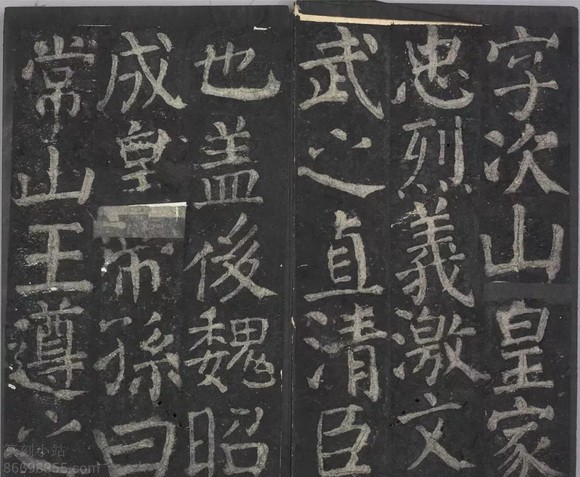 字次山皇家
忠烈義激文
武之直清臣
也盖後魏昭
成皇帝孫曰
常山王遵之
86698855.com